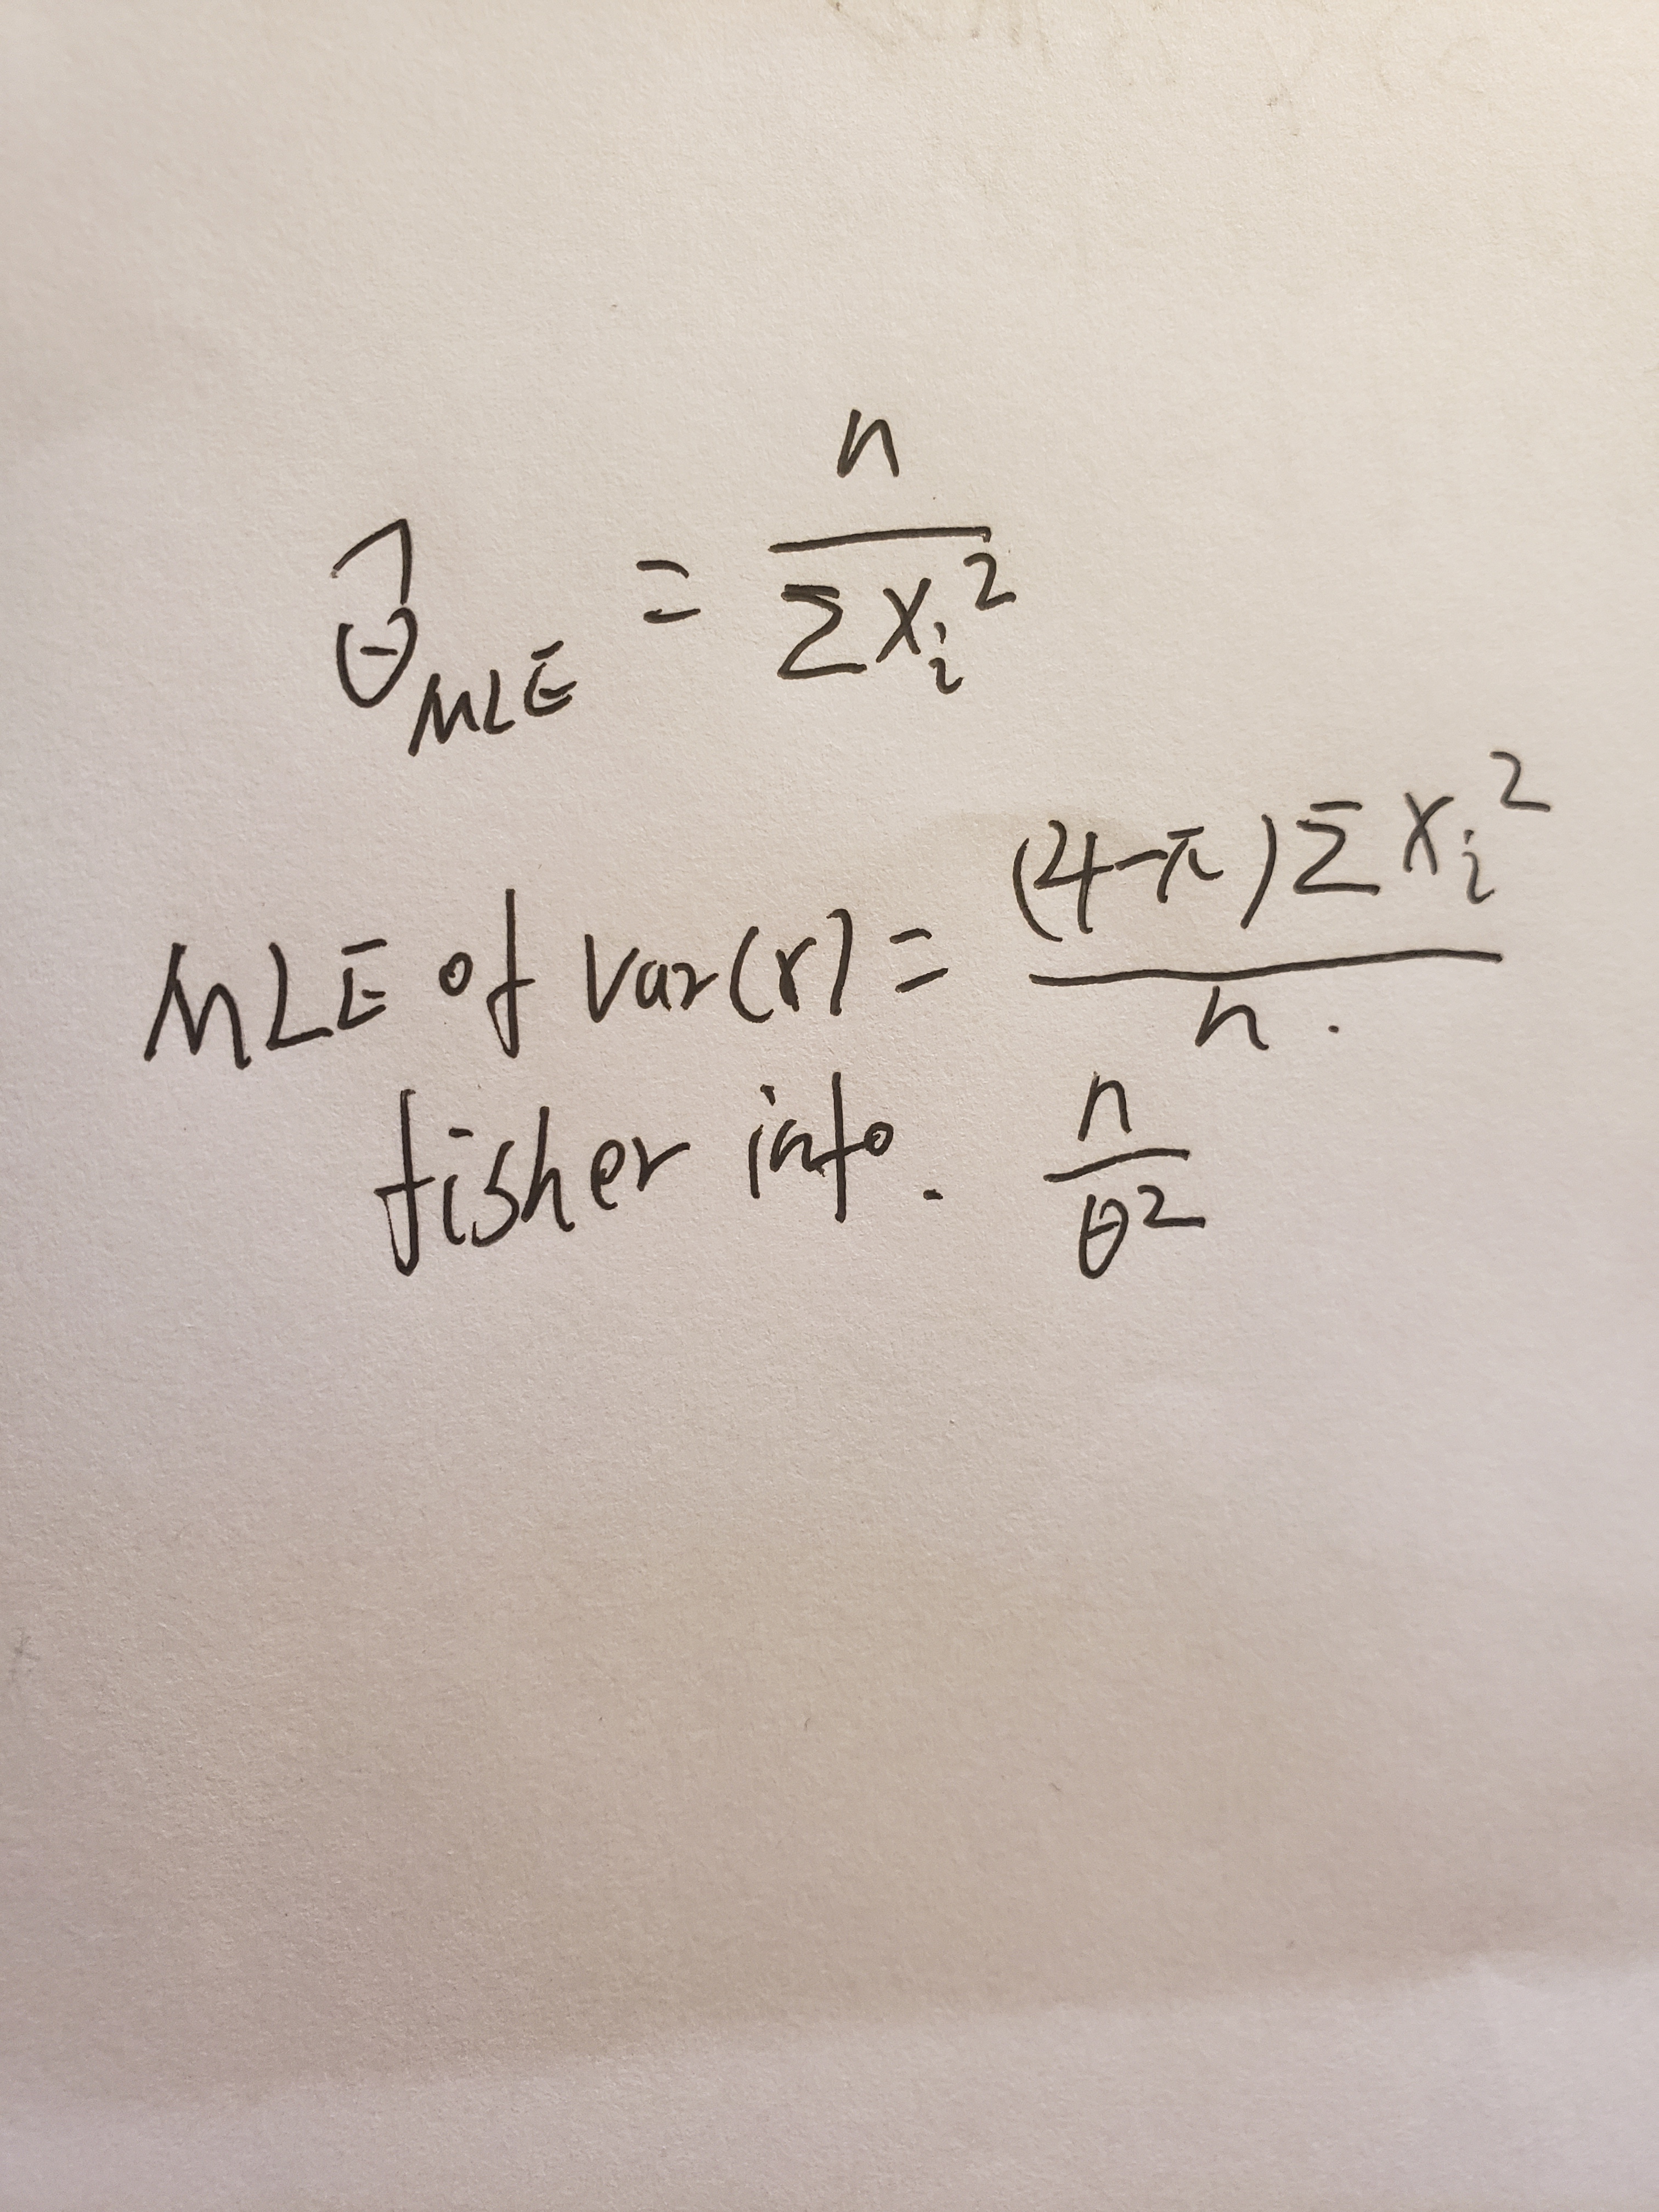 θ̂_MLE = n / Σ x_i^2
MLE of var(x) = (4-π) Σ x_i^2 / n.
fisher info. n / θ^2